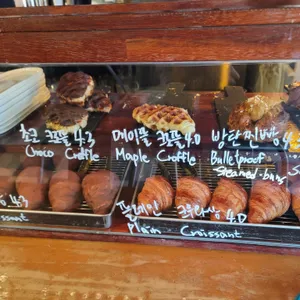 초코 크로플 4.3
Choco Croffle
메이플 크로플 4.0
Maple Croffle
방탄찐빵 4
Bulletproof
Steamed-buns
4.3
ssant
플레인 크루아상 4.0
Plain Croissant